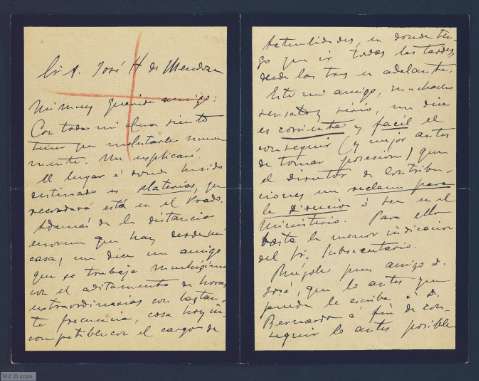 Sr. D. José H. de Mendoza
Mi muy querido amigo:
Con toda mi alma siento
tener que molestarle nueva
mente. Me explicaré
El lugar á donde he sido
destinado es Loterías, que
recordará está en el Prado.
Además de la distancia
enorme que hay desde mi
casa, me dice un amigo
que se trabaja muchísimo
con el aditamento de horas
extraordinarias con bastan-
te frecuencia, cosa hoy in-
compatible con el cargo de
en donde ten-
go que ir todas las tardes,
desde las tres en adelante.
Este mi amigo, muchacho
sensato y serio, me dice
es corriente y fácil el
conseguir (y mejor antes
de tomar posesión) que
el director de Contribu-
ciones me reclame para
la Dirección ó sea en el
Ministerio. Para ello
basta la menor indicación
del Sr. Subsecretario.
Ruégole pues amigo D.
José, que lo antes que
pueda le escriba á D.
Bernardo á fin de con-
seguir lo antes posible